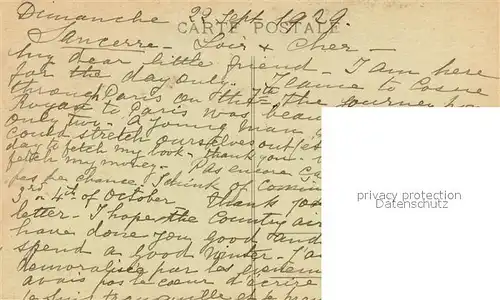 Dimanche 22 Sept. 1929.
CARTE POSTALE
Sancerre - Loir & Cher -
My dear little friend - I am here
for the day only. I came to Cosne
through Paris on the 7th - The journey from
Royat to Paris was
only two - A young man
could stretch ourselves out
day to fetch my book - thank you -
fetch my money - Pas encore
pas de chance. I think of coming
3rd or 4th of October. Thank you
letter - I hope the Country air
have done you good and
spend a good winter - I
demoralisée par les
avais pas le coeur d'écrire
privacy protection
Datenschutz